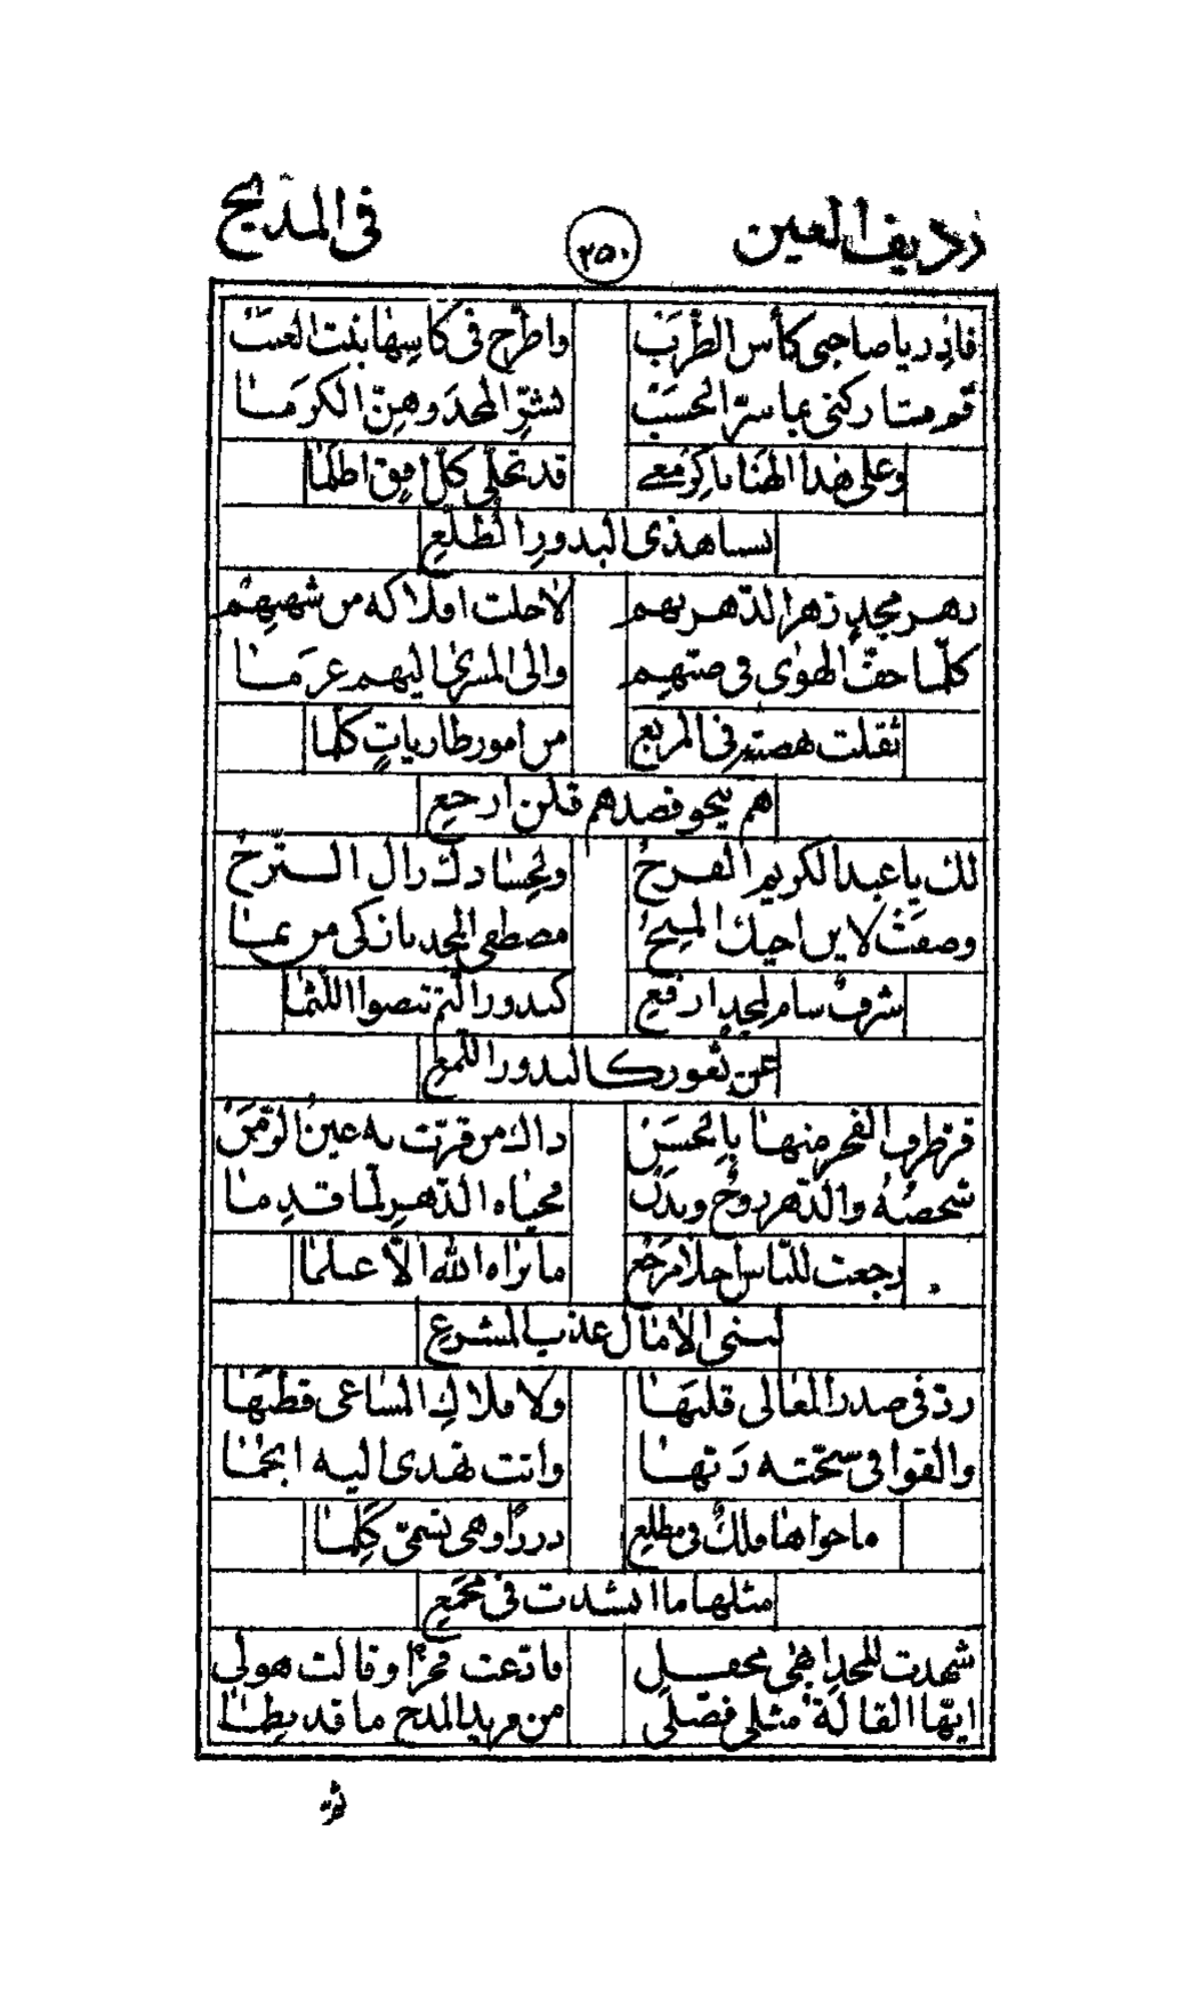 رديف العين ٢٥٠ في المديح
فادر يا صاحبي كأس الطرب واطرح في كاسها بنت العنب
قم نشاركني بما سر الحسب نشر المجد وهن الكرما
وعلى هذا الهنا باكر معي قد تجلى كل افق اظلما
بسنا هذي البدور الطلع
زهر مجد زهر الدهر بهم لا خلت افلاكه من شهبهم
كلما حف الهوى في صبهم والى المسرى اليهم عزما
ثقلت نهضته في المربع من امور طاريات كلما
هم ينحو قصدهم قلن ارجع
لك يا عبد الكريم الفرح ولحسادك زال الترح
وصفت لابن اخيك المنح مصطفى المجد بازكى من نما
شرف سام لمجد ارفع كبدور التم تنضوا اللثما
عن ثغور كالبدور اللمع
قر طرف الفخر منها بالحسن ذاك من قرت به عين الزمن
شخصه والدهر روح وبدن محياه الدهر لما قدما
رجعت للناس احلا مرجع ما نراه الله الا علما
لبني الامال عذب المشرع
زد في صدر المعالي قلبها ولا فلاك المساعي قطبها
والقوافي ستحته ربها وانت تهدى اليه انجما
ما حواها فلك في مطلع دررا وهي تسمى كلما
مثلها ما انشدت في مجمع
شهدت للمجد ابهى محفل فادعت فخرا وقالت هو لي
ايها القالة مثلي فصلي من مريد المدح ما قد نظما